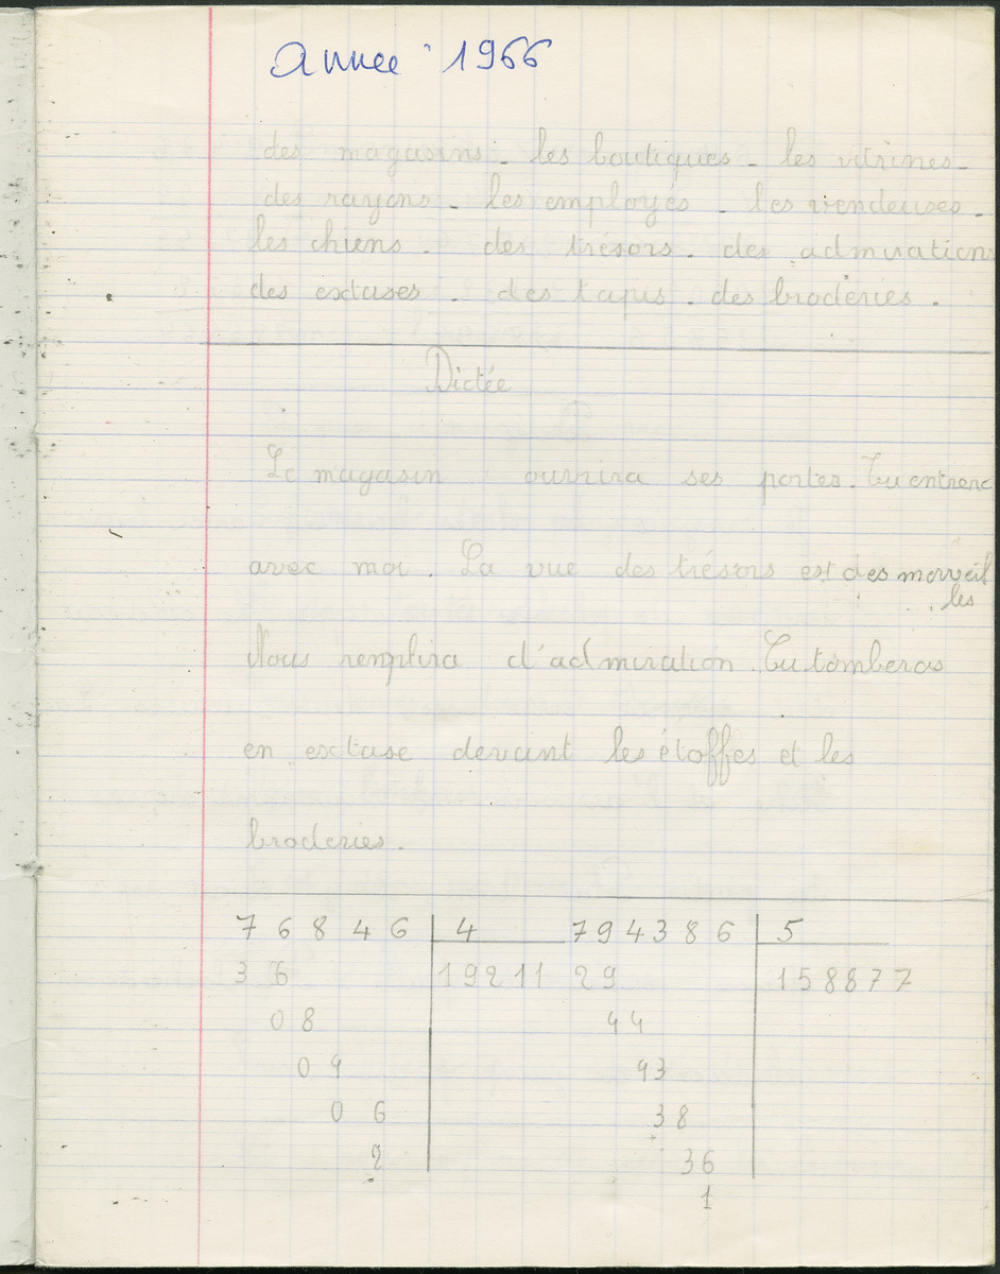 année 1966
des magasins - les boutiques - les vitrines -
des rayons - les employés - les vendeuses -
les chiens - des trésors - des admirations
des extases - des tapis - des broderies -
Dictée
Le magasin ouvrira ses portes. Tu entreras
avec moi. La vue des trésors est des merveil
les
Nous remplira d'admiration. Tu tomberas
en extase devant les étoffes et les
broderies.
7 6 8 4 6 4 7 9 4 3 8 6 5
3 6 1 9 2 1 1 2 9 1 5 8 8 7 7
0 8 4 4
0 4 4 3
0 6 3 8
2 3 6
1